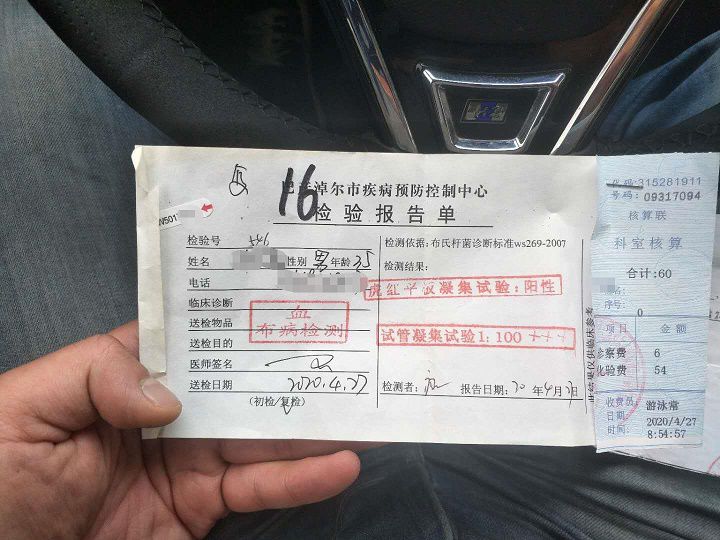 16
巴彦淖尔市疾病预防控制中心
检验报告单
检验号 546
姓名 性别 男 年龄 35
电话
临床诊断
送检物品
送检目的
医师签名
送检日期 2020.4.27
(初检/复检)
血
布病检测
检测依据:布氏杆菌诊断标准ws269-2007
检测结果:
虎红平板凝集试验:阳性
试管凝集试验1:100 +++
检测者: 报告日期:20年4月 日
此结果仅供临床参考
代码:315281911
号码:09317094
核算联
科室核算
合计:60
名:
序号: 0
项目 金额
诊察费 6
化验费 54
收费员: 游泳常
日期: 2020/4/27
时间: 8:54:57